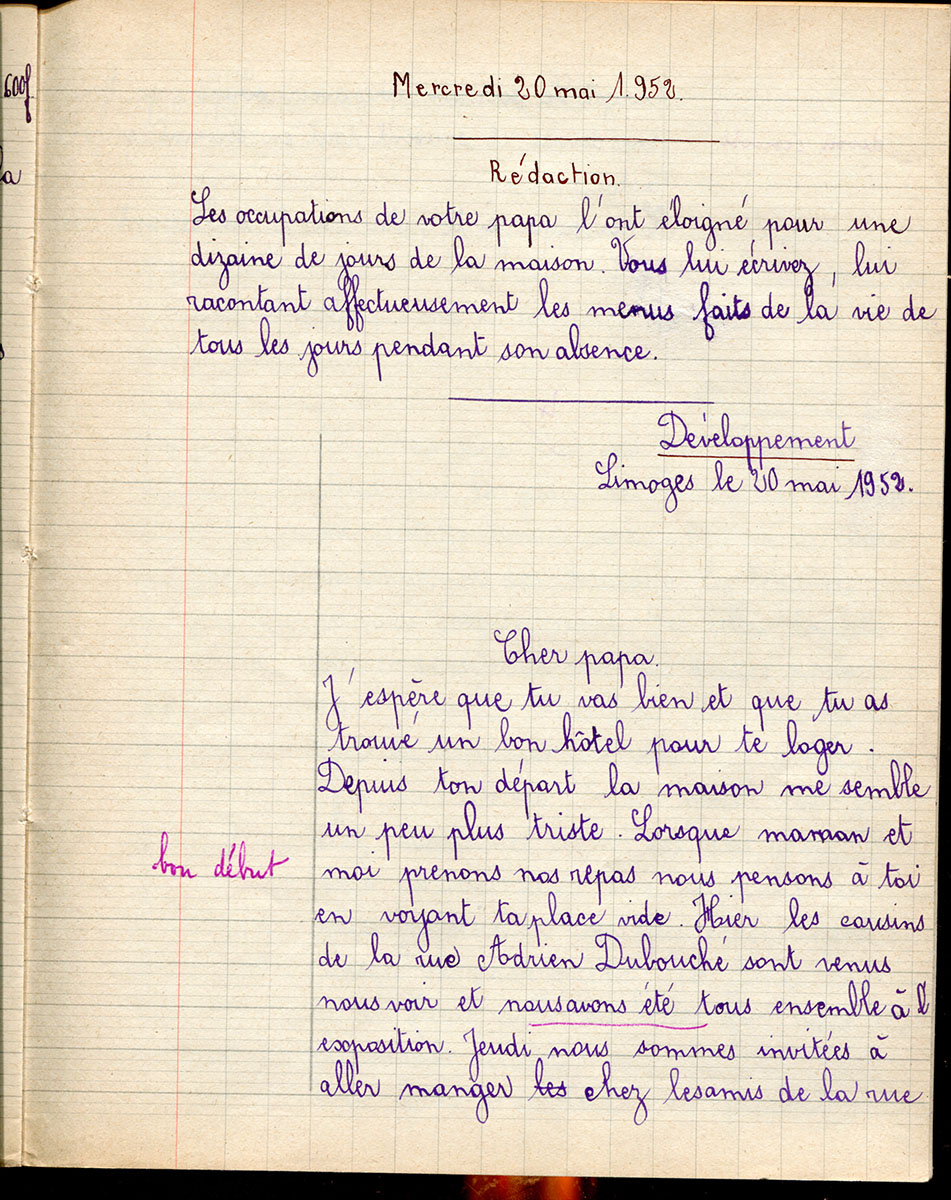 600f
la
Mercredi 20 mai 1.952.
Rédaction.
Les occupations de votre papa l'ont éloigné pour une
dizaine de jours de la maison. Vous lui écrivez, lui
racontant affectueusement les menus faits de la vie de
tous les jours pendant son absence.
Développement
Limoges le 20 mai 1952.
Cher papa.
J'espère que tu vas bien et que tu as
trouvé un bon hôtel pour te loger.
Depuis ton départ la maison me semble
un peu plus triste. Lorsque maman et
bon début
moi prenons nos repas nous pensons à toi
en voyant ta place vide. Hier les cousins
de la rue Adrien Dubouché sont venus
nous voir et nous avons été tous ensemble à l'
exposition. Jeudi nous sommes invitées à
aller manger les chez les amis de la rue